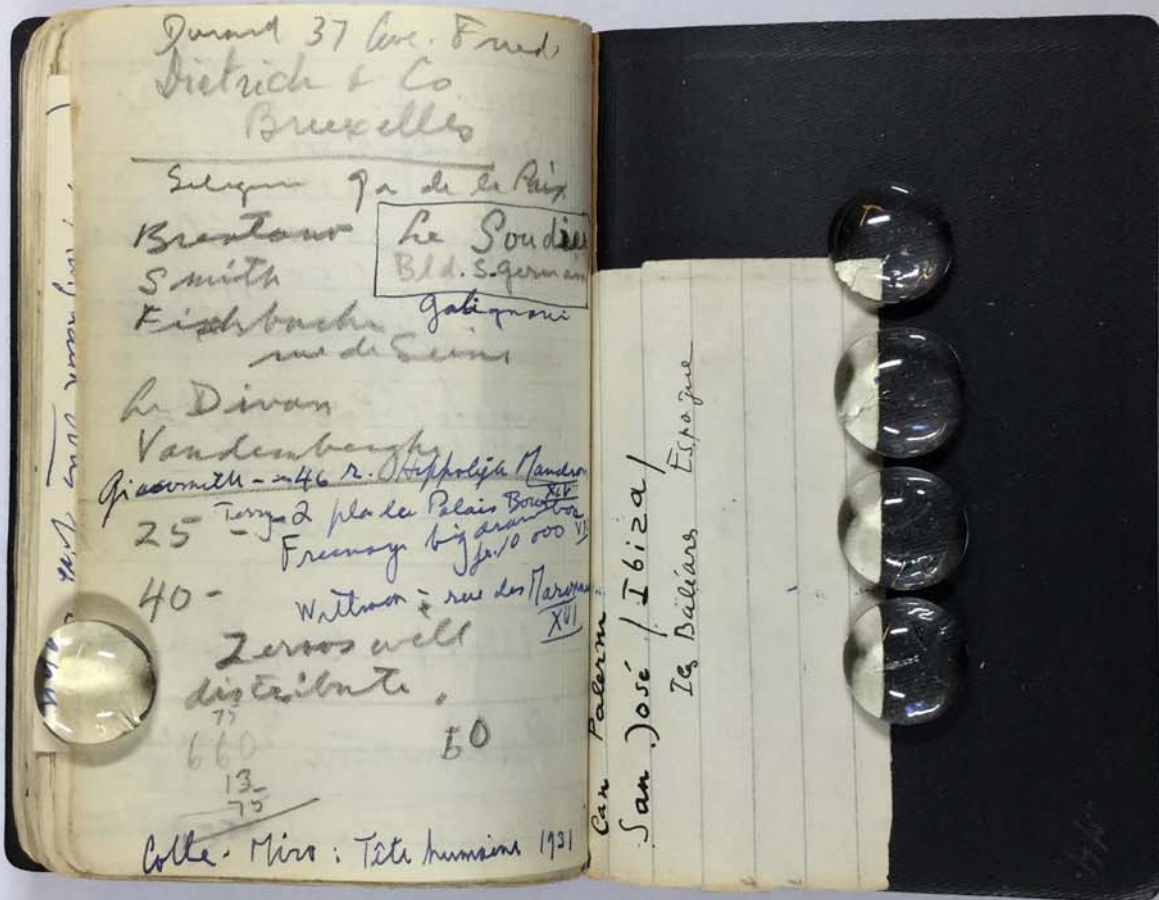 Durand 37 Ave. Fried
Dietrich & Co
Bruxelles
9 r de la Paix
Brentano
Smith
Le Soudier
Bld. S. germain
galignani
Fischbacher
rue de Seine
Le Divan
Vandenberghe
Giacometti - 46 r. Hippolyte Maindron
XIV
25 - Terry 2 place du Palais Bourbon
VII
Fresnaye big
fr. 10 000
40 -
Wittman - rue des
XVI
Zervos will
distribute.
75
660
50
13
75
Colle - Miro : Tête humaine 1931
Can Palerm
San José / Ibiza /
Ies Baléars Espagne